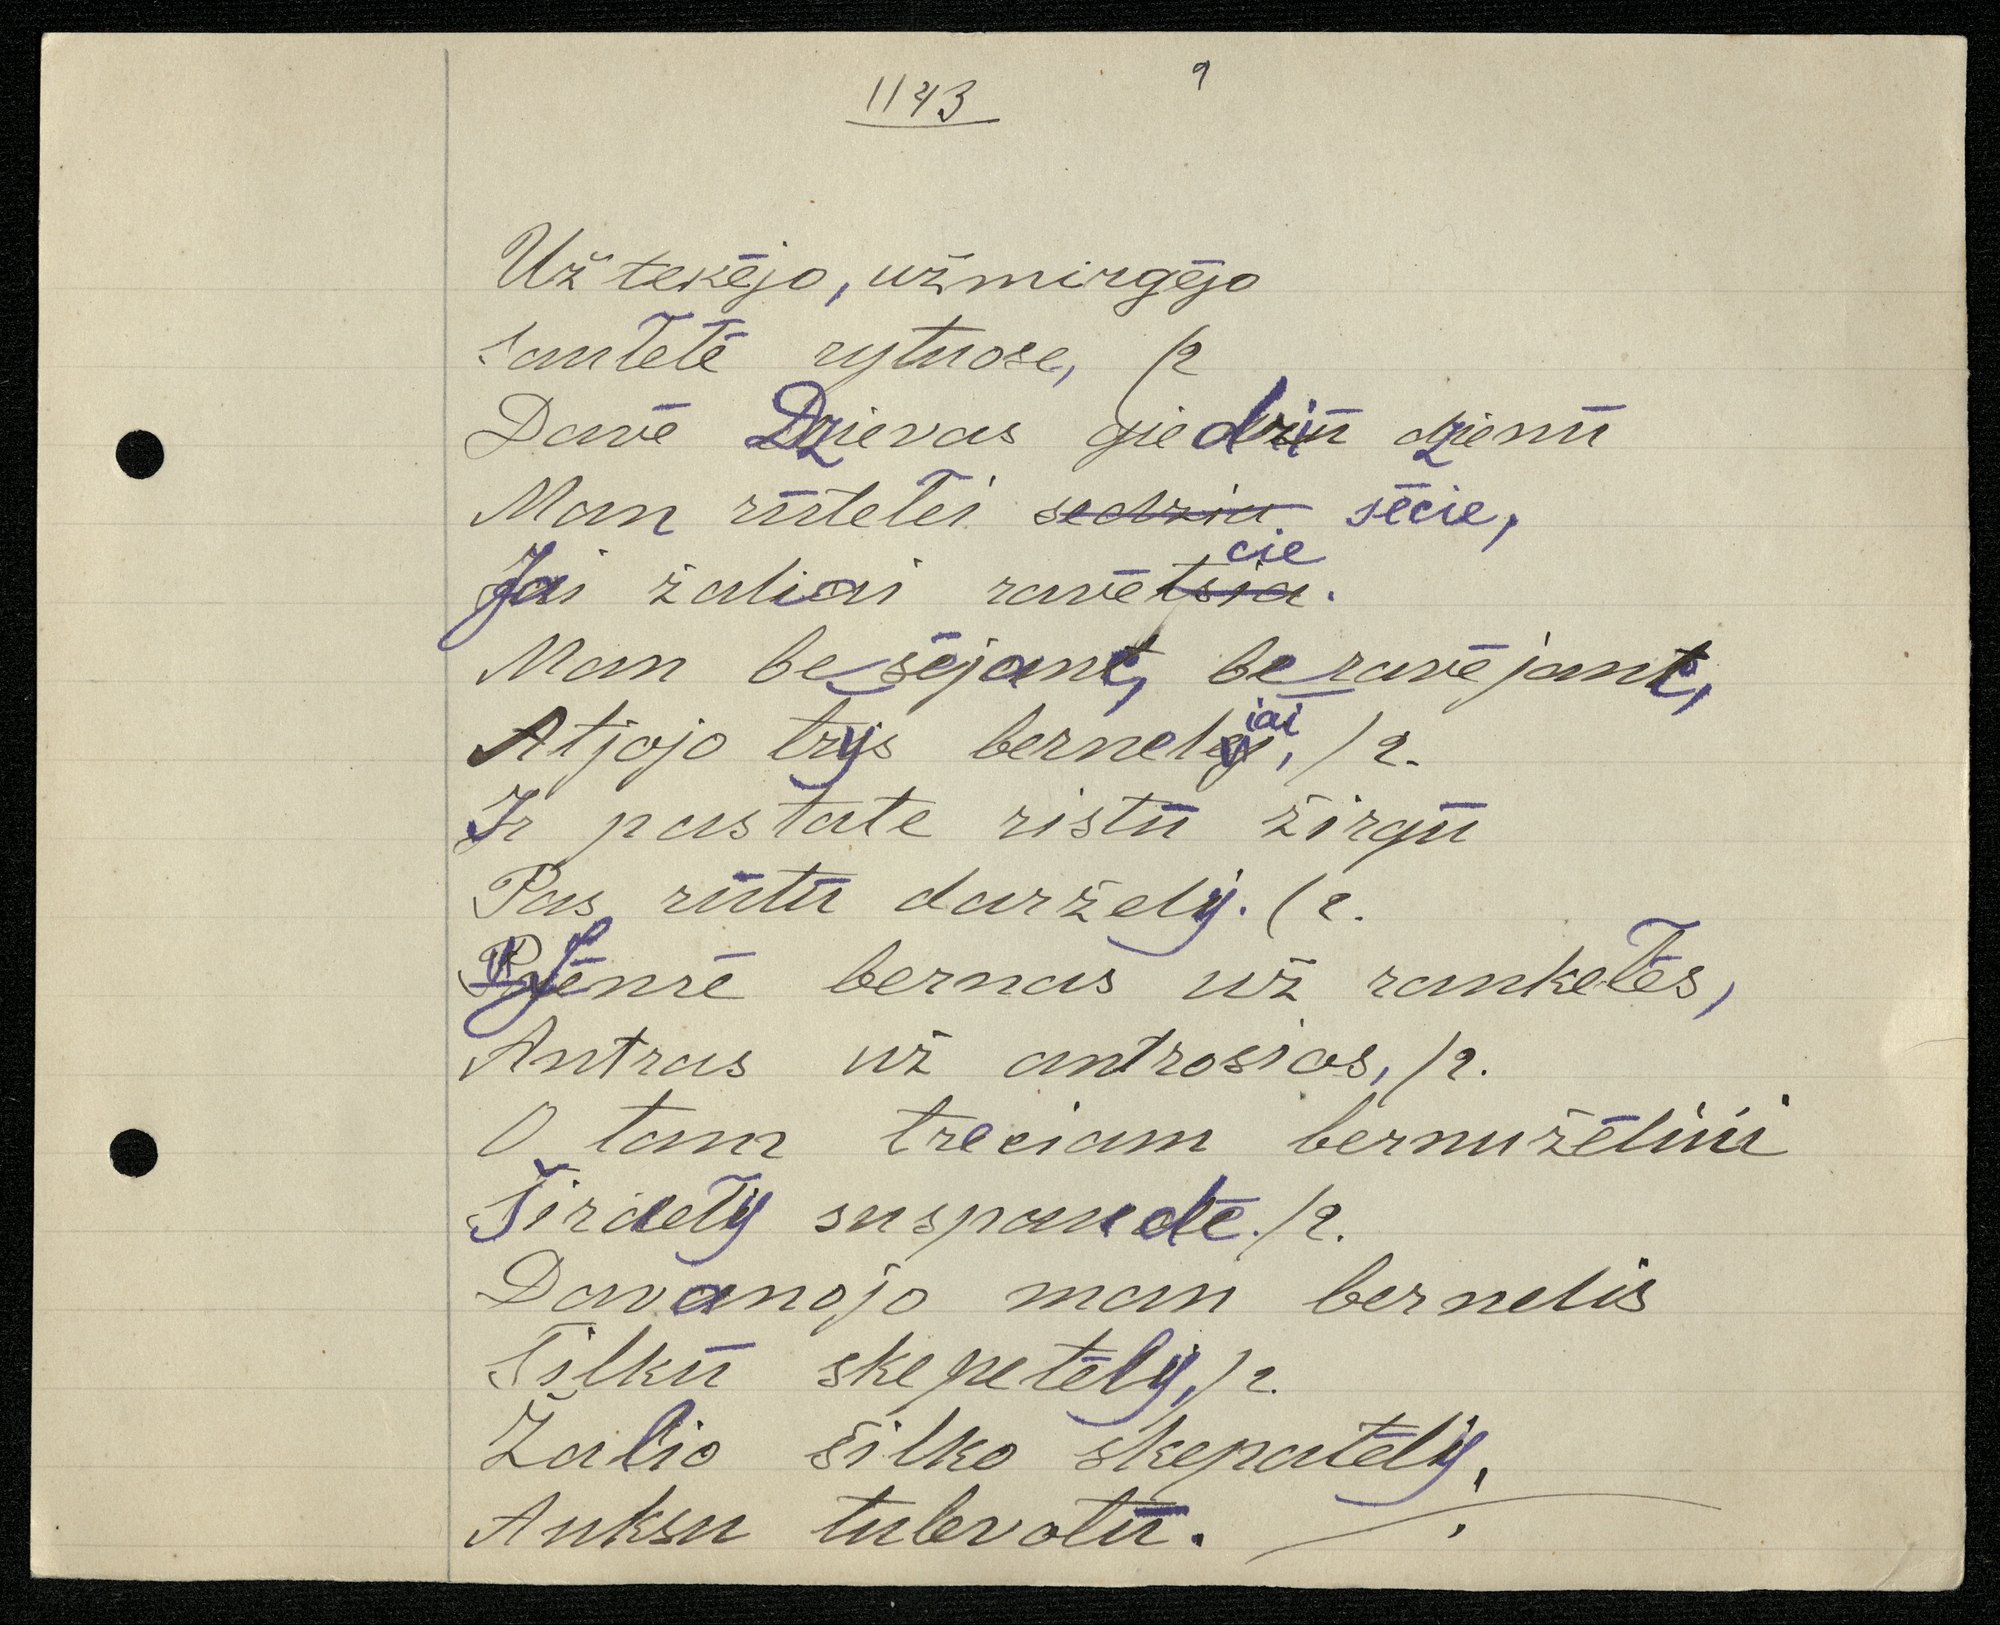 1143 9
Užtekėjo, užmirgėjo
Saułełė rytuose, /2
Davė Dzievas giedriū dzienū
Man rūtełei sėcie,
Jai žaliai ravėcie.
Man besėjant, beravėjant,
Atjojo trys berneliai, /2.
Ir pastatė ristū žirgū
Pas rūtū darželį. /2.
bernas už rankełės,
Antras už antrosios, /2.
O tam treciam bernužėliui
Širdełį suspaudė. /2.
Davanojo man bernelis
Šilkū skepetėlį, /2.
Žalio šilko skepatėlį,
Auksu